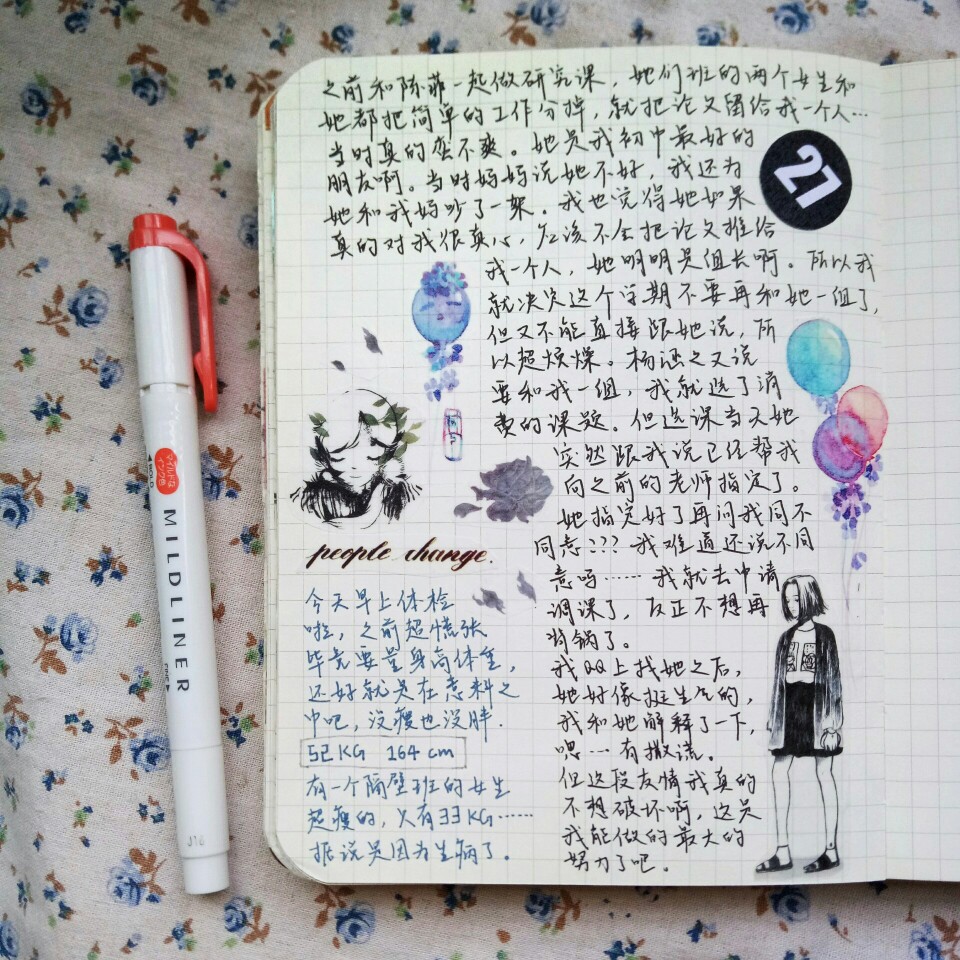 之前和陈菲一起做研究课，她们班的两个女生和
她都把简单的工作分掉，就把论文留给我一个人…
当时真的蛮不爽。她是我初中最好的
朋友啊。当时妈妈说她不好，我还为
她和我妈吵了一架。我也觉得她如果
真的对我很真心，应该不会把论文推给
我一个人，她明明是组长啊。所以我
就决定这个学期不要再和她一组了，
但又不能直接跟她说，所
以超烦燥。杨涵之又说
要和我一组，我就选了消
费的课题。但选课当天她
突然跟我说已经帮我
向之前的老师指定了。
她指定好了再问我同不
同意???我难道还说不同
意吗……我就去申请
调课了，反正不想再
背锅了。
我QQ上找她之后，
她好像挺生气的，
我和她解释了一下，
嗯…有撒谎。
但这段友情我真的
不想破坏啊，这是
我能做的最大的
努力了吧。
27
people change.
今天早上体检
啦，之前超慌张
毕竟要量身高体重，
还好就是在意料之
中吧，没瘦也没胖.
52KG 164cm
有一个隔壁班的女生
超瘦的，只有33KG……
据说是因为生病了。
MILDLINER
マイルドな
インク色
BOLD
FINE
J16